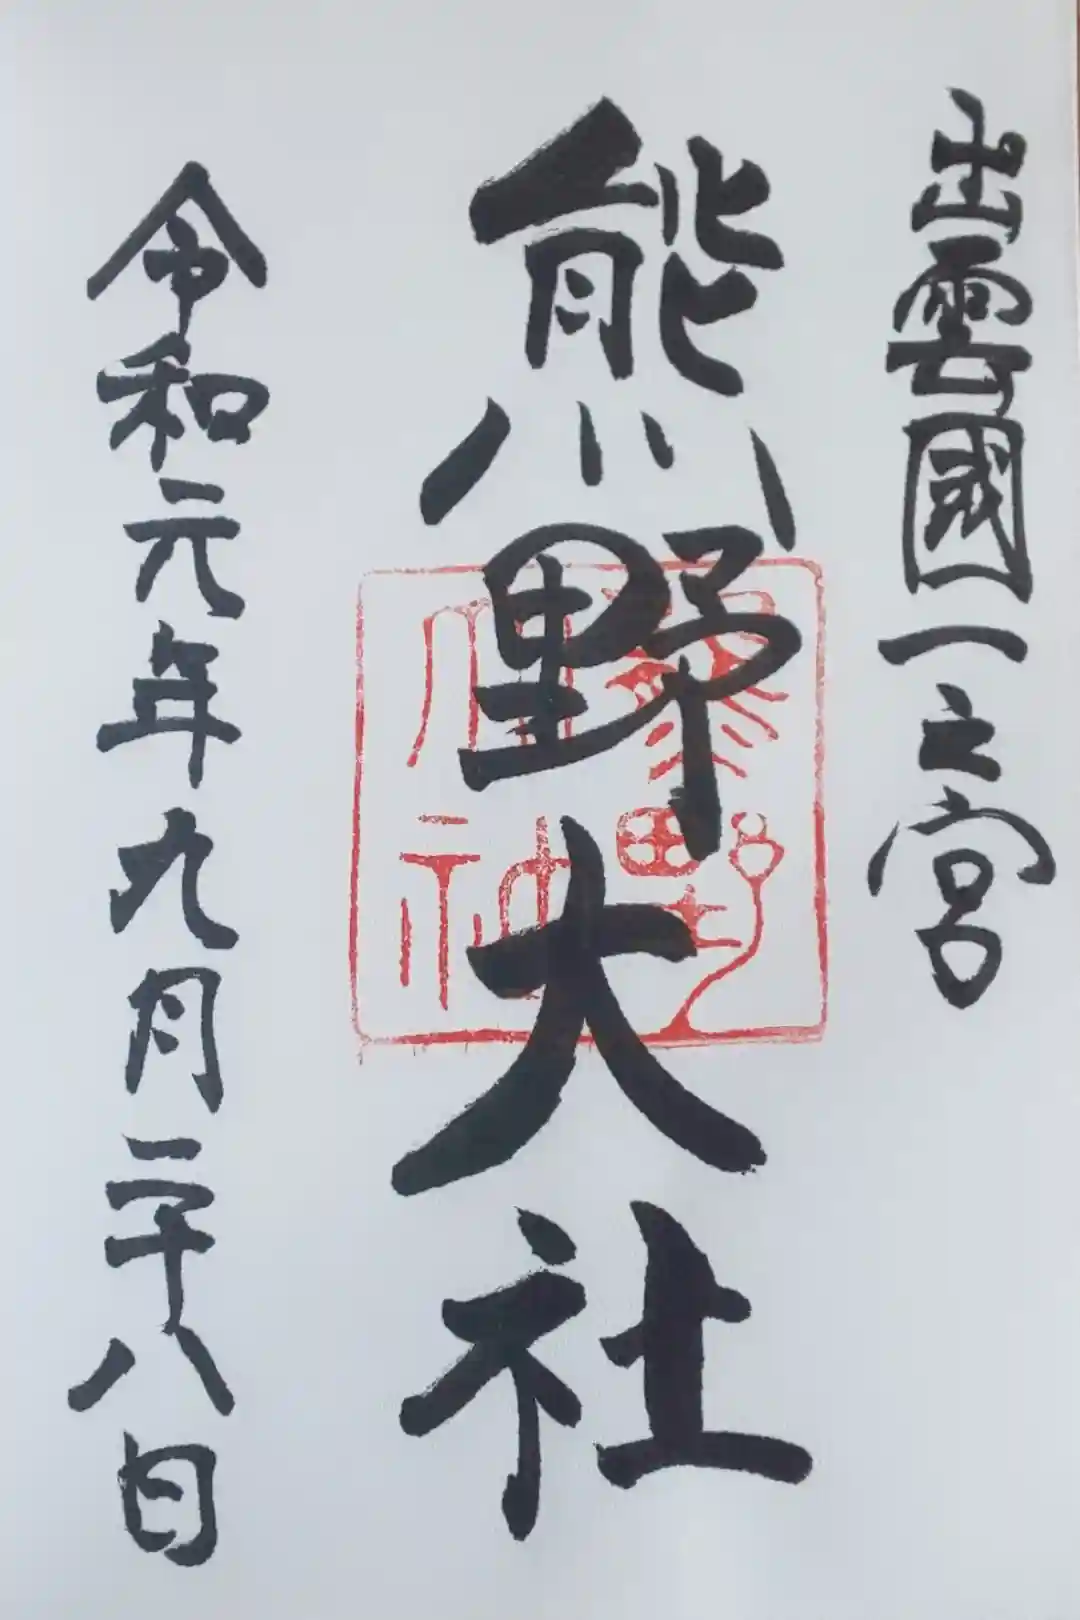 出雲國一之宮
熊野大社
令和元年九月二十八日